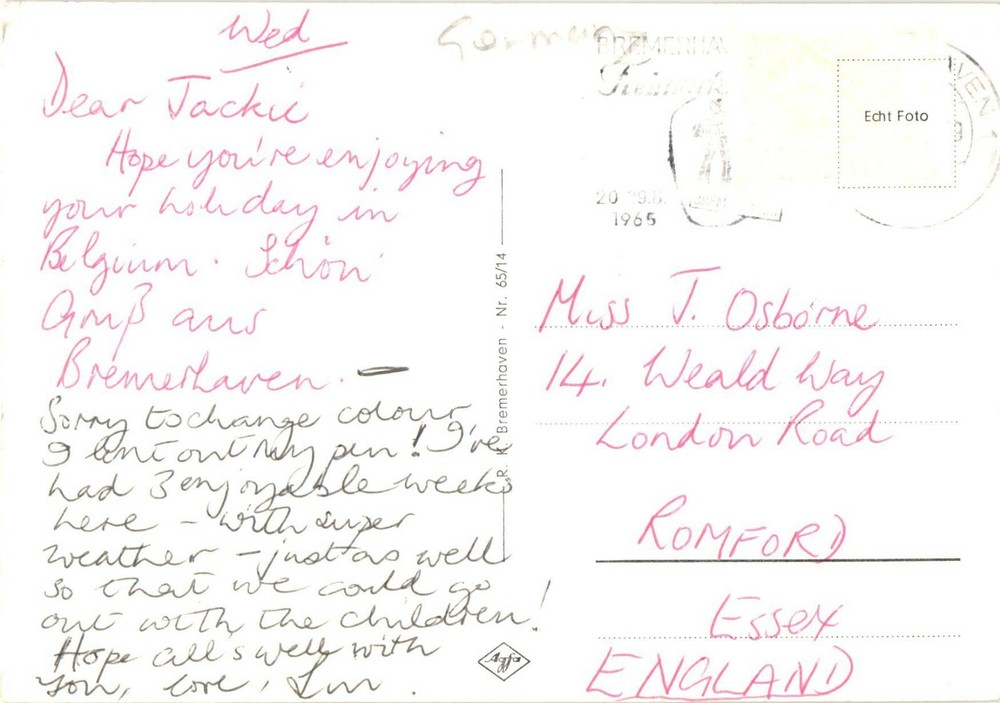 Wed
Dear Jackie
Hope you're enjoying
your holiday in
Belgium. Schön
Gruß aus
Bremerhaven. —
Sorry to change colour
I lent out my pen! I've
had 3 enjoyable weeks
here - with super
weather - just as well
so that we could go
out with the children!
Hope all's well with
you, love,
Germany
BREMERHAV
20 29.6.
1965
VEN 1
Echt Foto
R. K. Bremerhaven - Nr. 65/14
Miss J. Osborne
14. Weald Way
London Road
ROMFORD
Essex
ENGLAND
Agfa